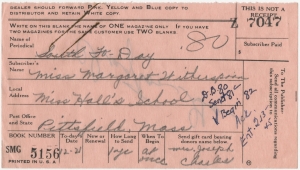 DEALER SHOULD FORWARD PINK, YELLOW AND BLUE COPY TO
DISTRIBUTOR AND RETAIN WHITE COPY.
THIS IS NOT A
RECEIPT
WRITE ON THIS BLANK THE NAME OF ONE MAGAZINE ONLY. IF YOU HAVE
TWO MAGAZINES FOR THE SAME SUBSCRIBER USE TWO BLANKS
Z 7047
Periodical
80
Subscriber Paid
South To-Day
Subscriber's
Name
Miss Margaret Witherspoon
Local
Address
Miss Hall's School
Post Office
and State
Pittsfield Mass
To the Publisher:
Send all communications regarding
this subscription to
Begin
BOOK NUMBER
To-day's
Date
New or
Renewal
How Long
to Send
When To
Begin
Send gift card bearing
donors name below.
SMG 5156
1 yr
at
once
Mrs. Joseph
Charles
PRINTED IN U. S. A.